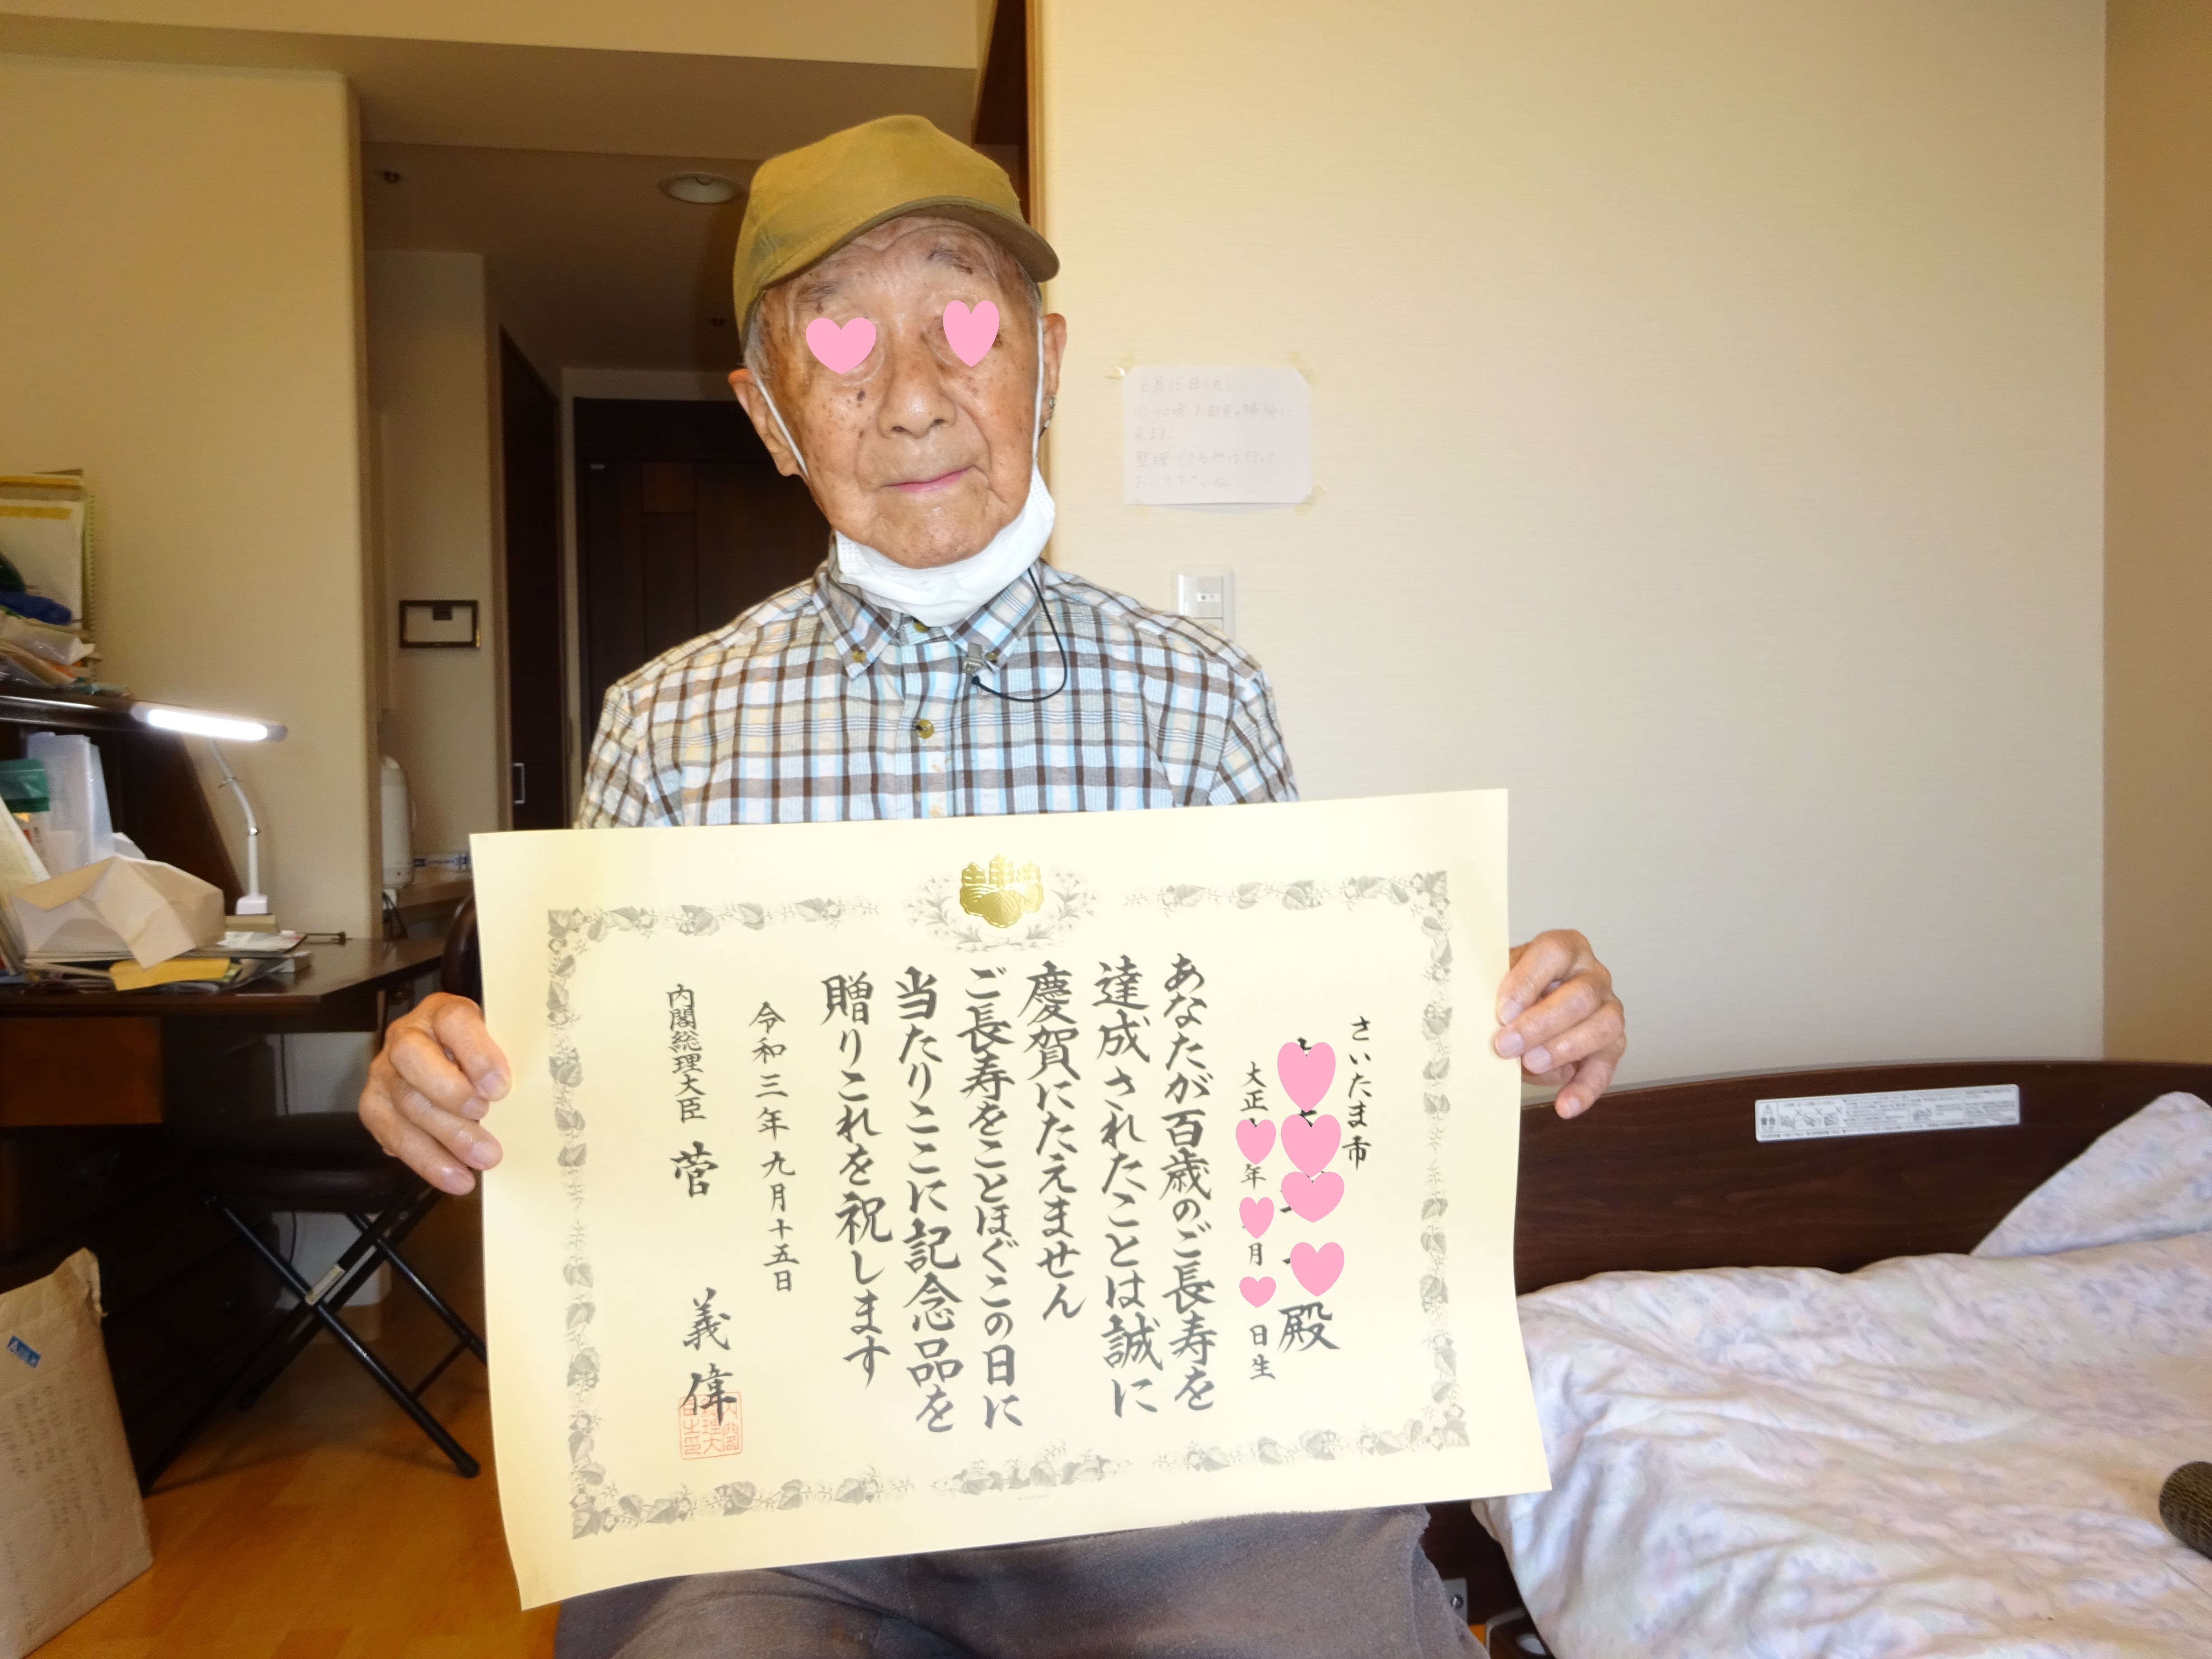 さいたま市
殿
大正 年 月 日生
あなたが百歳のご長寿を
達成されたことは誠に
慶賀にたえません
ご長寿をことほぐこの日に
当たりここに記念品を
贈りこれを祝します
令和三年九月十五日
内閣総理大臣 菅 義偉
6月15日(月)
来ます。